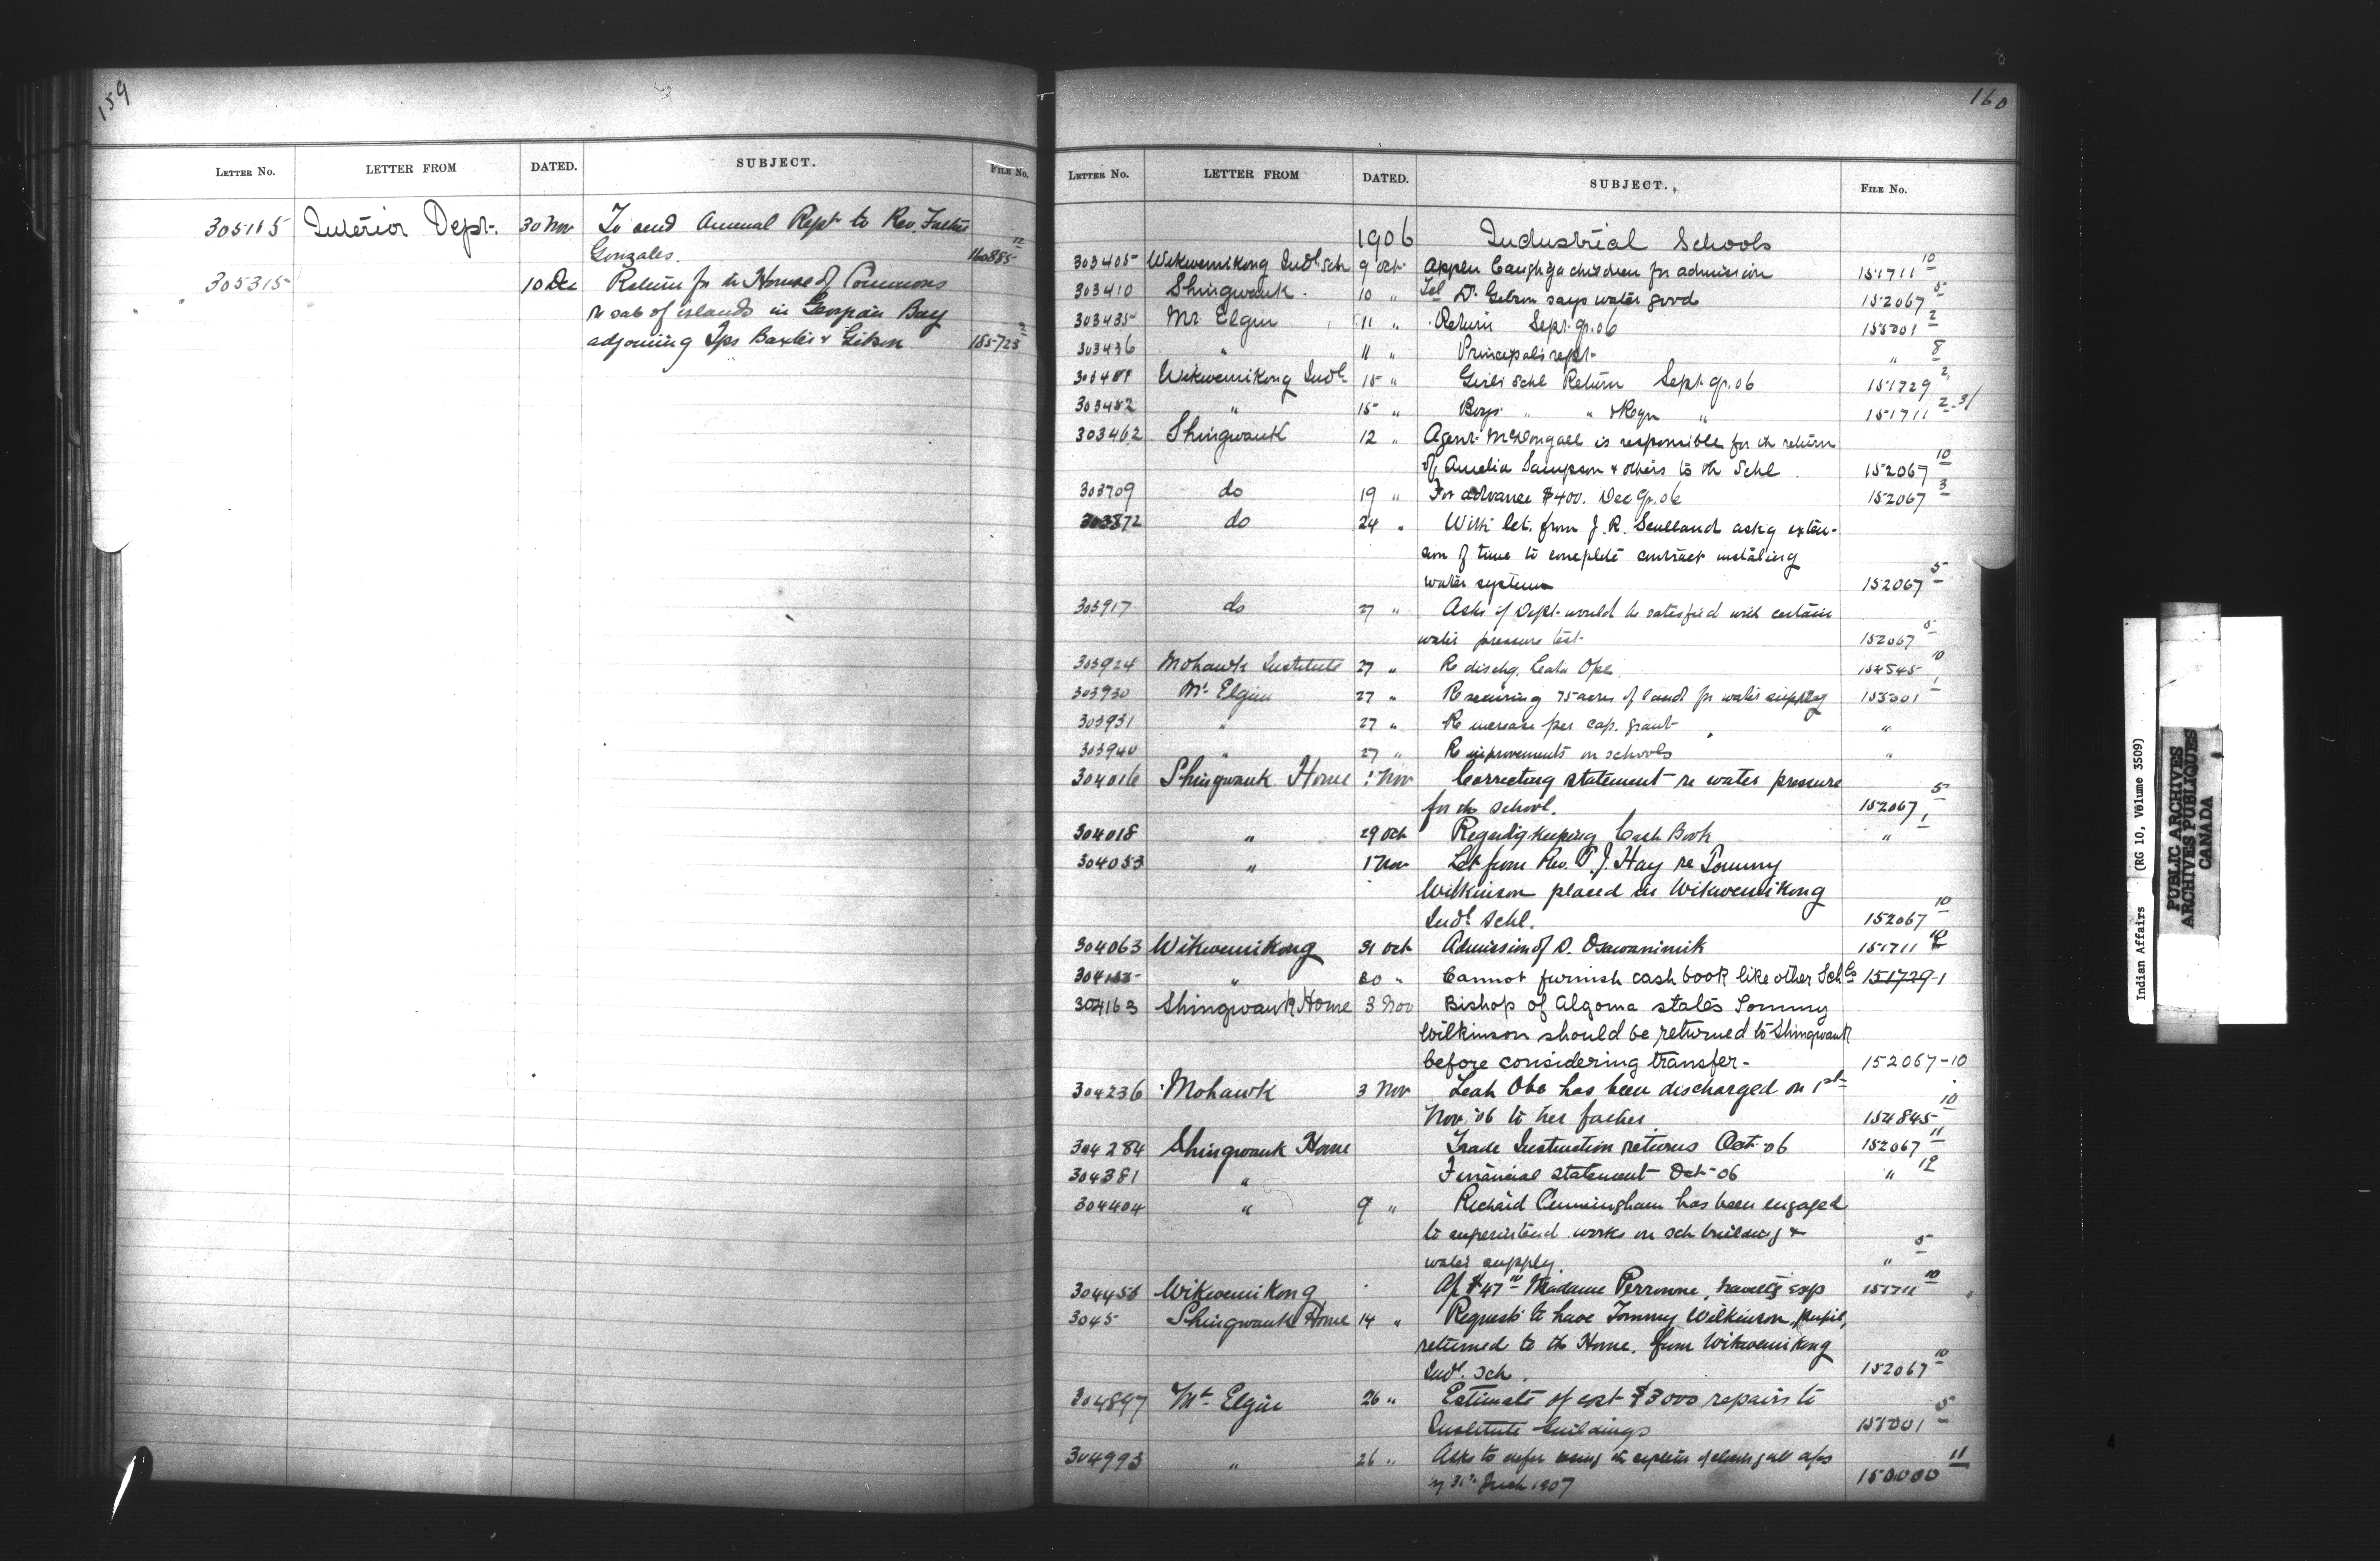 159
LETTER NO. LETTER FROM DATED. SUBJECT. FILE NO.
305115 Interior Dept. 30 Nov To send Annual Rept to Rev. Father
Gonzales. 160885 12
305315 10 Dec Return for the House of Commons
re sale of islands in Georgian Bay
adjoining Tps Baxter & Gibson 185723 2
160
LETTER NO. LETTER FROM DATED. SUBJECT. FILE NO.
1906 Industrial Schools
303405 Wikwemikong Indl Sch 9 Oct children for admission 151711 10
303410 Shingwauk. 10 " Tel Dr. Gibson says water good 152067 5
303435 Mt Elgin 11 " Return Sept. qr. 06 155301 2
303436 " 11 " Principals rept. " 8
Wikwemikong Indl 15 " Girls Schl Return Sept. qr. 06 151729 2
303482 " 15 " Boys " " " 151711 2-3/
303462 Shingwauk 12 " Agent McDougall is responsible for the return
of Amelia Sampson & others to the Schl. 152067 10
303709 do 19 " For advance $400. Dec qr. 06 152067 3
303872 do 24 " With let. from J. R. asks exten-
sion of time to complete contract installing
water system 152067 5
303917 do 27 " Asks if Dept. would be satisfied with certain
water pressure test. 152067 5
303924 Mohawk Institute 27 " Re dischg. Leah 10
303930 Mt Elgin 27 " Re securing 75 acres of land for water supply 155301 1
303931 " 27 " Re increase per cap. grant "
303940 " 27 " Re improvements on schools "
304016 Shingwauk Home 1 Nov Correcting statement re water pressure
for the school. 152067 5
304018 " 29 Oct Regardg keeping Cash Book " 1
304053 " 1 Nov Let from Rev. P. J. Hay re Tommy
Wilkinson placed in Wikwemikong
Indl Schl. 152067 10
304063 Wikwemikong 31 Oct Admission of D. 151711 10
" 30 " Cannot furnish cash book like other Schls 151729-1
304163 Shingwauk Home 3 Nov Bishop of Algoma states Tommy
Wilkinson should be returned to Shingwauk
before considering transfer - 152067-10
304236 Mohawk 3 Nov Leah Obe has been discharged on 1st
Nov. '06 to her father 154845 10
304284 Shingwauk Home Trade Instruction returns Oct. 06 152067 11
304381 " Financial statement Oct. 06 " 12
304404 " 9 " Richard Cunningham has been engaged
to superintend works on sch building &
water supply. " 5
Wikwemikong Madame Perronne, travellg exp 151711 10
3045 Shingwauk Home 14 " Requests to have Tommy Wilkinson, pupil,
returned to the Home, from Wikwemikong
Indl. Sch. 152067 10
304897 Mt Elgin 26 " Estimate of cost $3000 repairs to
Institute buildings 5
304993 " 26 " Asks to defer using the system of all
1907 150000 11
Indian Affairs (RG 10, Volume 3509)
PUBLIC ARCHIVES
ARCHIVES PUBLIQUES
CANADA